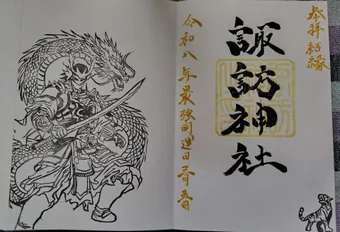 奉拝 結縁
諏訪神社
令和八年最強開運日